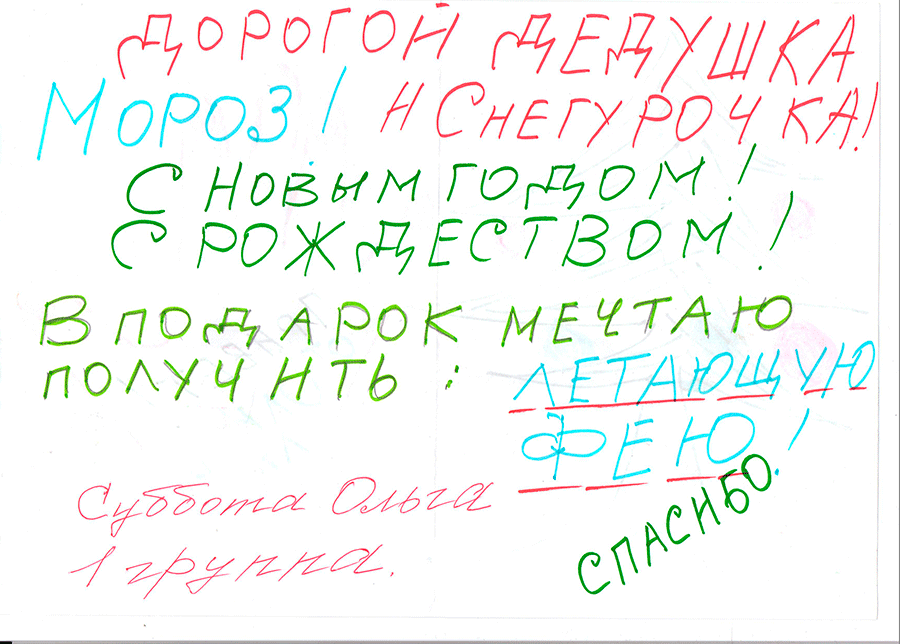 ДОРОГОЙ ДЕДУШКА
МОРОЗ! И СНЕГУРОЧКА!
С НОВЫМ ГОДОМ!
С РОЖДЕСТВОМ!
В ПОДАРОК МЕЧТАЮ
ПОЛУЧИТЬ: ЛЕТАЮЩУЮ
ФЕЮ!
СПАСИБО.
Суббота Ольга
1 группа.